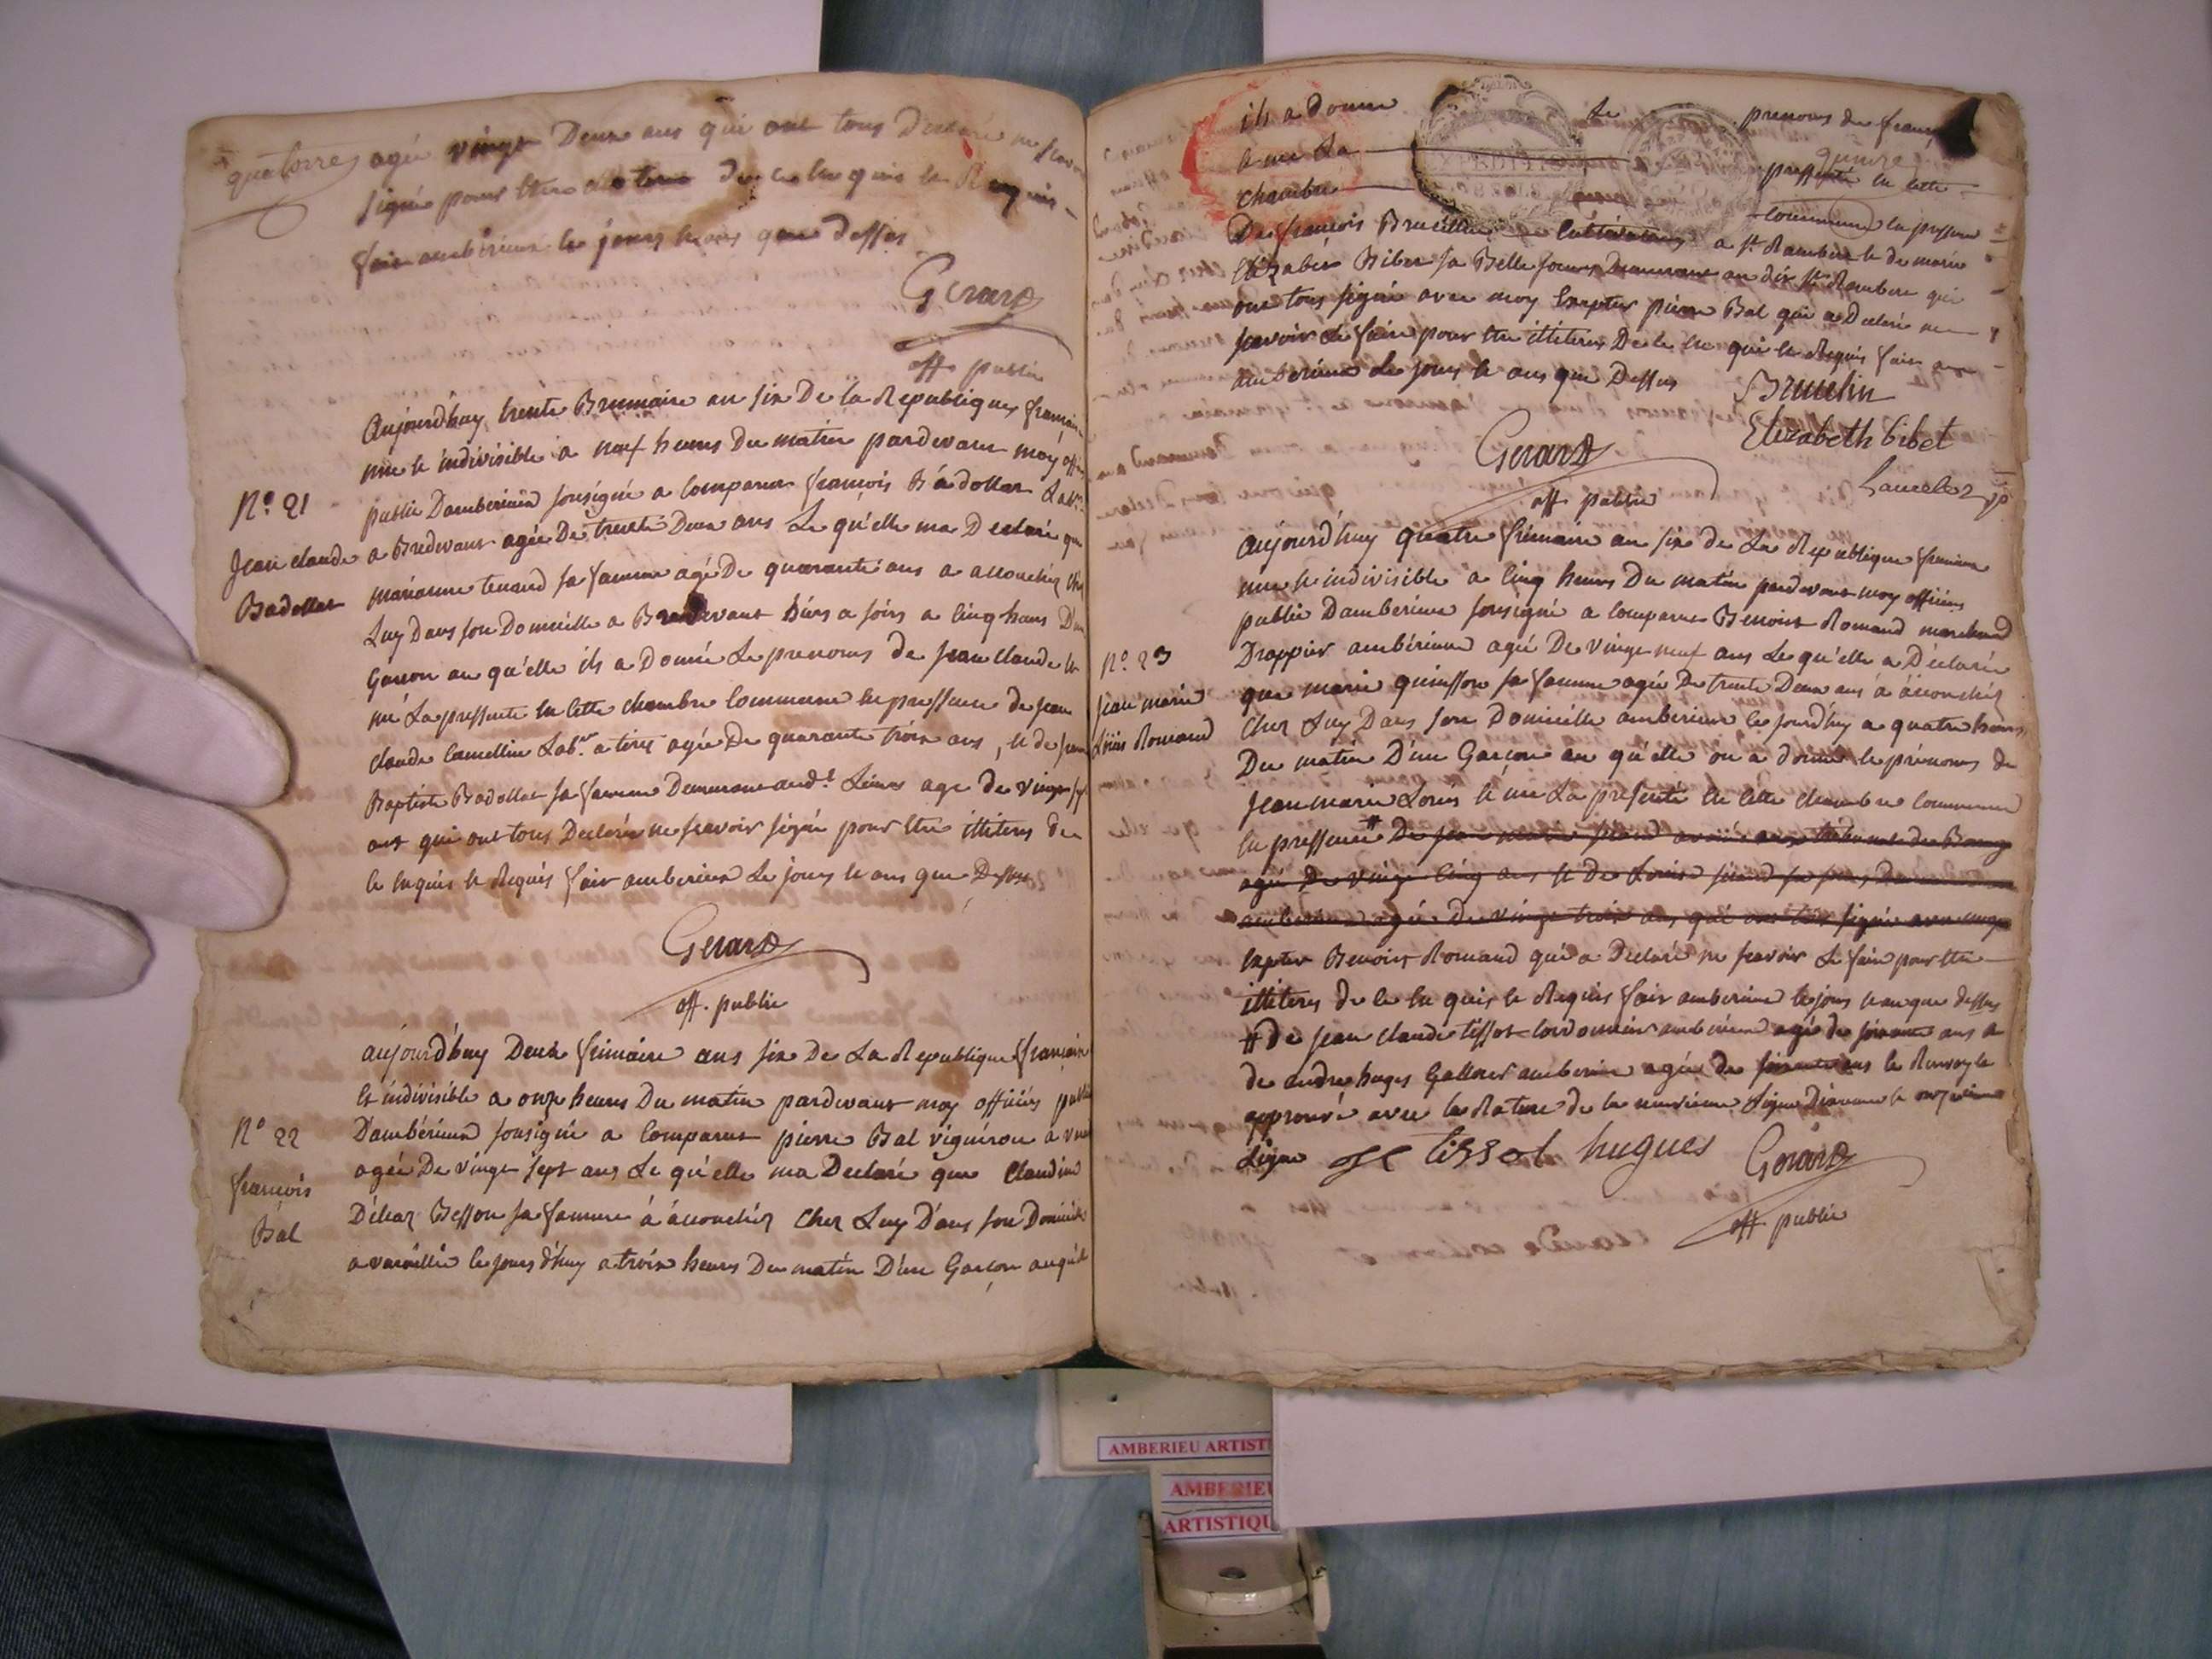 quatorze
agée vingt Deux ans qui ont tous Declaré ne scavoir
signé pour Etre de ce Enquis le Requis
fait amberieux le jours le ans que Dessus
Gerard
off. public
Aujourd'huy trente Brumaire an six De la Republiques francai
une le indivisible a neuf heures Du matin pardevant moy offi
N° 21
public Damberieux sousigné a Comparut francois Badollat Labr.
Jean claude
a Bredevant agée De trente Deux ans Le qu'elle ma Declaré que
Badollat
marianne tenand sa famme agé De quarante ans a accouchéz chéz
Luy Dans son Domicille a Bredevant hiers a soirs a cinq heures D'un
Garcon au qu'elle ils a Donné Le prenoms de jean Claude le
mé La pressenté En cette chambre Commune En pressence de jean
claude Camellin Labr. a tiret agée De quarante trois ans, le de jean
Baptiste Badollat sa famme Demeurant aud.t age de vingt
ans qui ont tous Declarée ne scavoir signé pour Etre illiteres De
ce Enquis le Requis fait amberieux Le jours le ans que Dessus
Gerard
off. public
aujourd'huy Deux frimaire ans six De La Republique francaise
le indivisible a onze heures Du matin pardevant moy officiers public
N° 22
D'ambérieux sousigné a Comparut pierre Bal vigneron a
agée De vingt sept ans Le qu'elle ma Declaré que Claudine
francois
Bal
Besson sa famme a accouchéz chez Luy D'ans son Domicile
a vareille ce jours d'huy a trois heures Du matin D'un Garcon auquel
ils a donne Le prenoms de francois
quinze
a me La pressenté En cette
chambre Commune En pressence
EXPEDITION
De francois Brucellin Cultivateurs a St Rambert le de marie
Elizabet Bibet sa Belle soeurs Demeurant au dit St Rambert qui
ont tous signé avec moy Excepter pierre Bal qui a Declaré ne
scavoir Le faire pour Etre illiteres De ce En quis le Requis fait a
amberieux Le jours le ans que Dessus
Brucelin
Elizabeth bibet
Gerard
off. public
aujourd'huy quatre frimaire an six de La Republique francaise
une le indivisible a cinq heures Du matin pardevant moy officiers
public Damberieux sousigné a Comparut Benoist Romand marchand
N° 23
Drappier ambérieux agée De vingt neuf ans Le qu'elle a Déclarée
jean marie
que marie quinsson sa famme agée De trente Deux ans a accouchéz
Louis Romand
Chez Luy Dans son Domicille amberieux ce jourd'huy a quatre heures
Du matin D'un Garcon au qu'elle on a donné le prénoms de
jean marie Louis le me La presenté En cette chambre Commune
En pressence # De jean marie avoué au tribunal de Bourg
agée De vingt cinq ans le de Louise
amberieux agée De vingt trois ans qui ont tous signée avec moy
Excepter Benoist Romand qui a Declaré ne scavoir Le faire pour Etre
illiteres de ce En quis le Requis fait amberieux le jours le an que dessus
# de jean claude tissot Cordonnier ambérieux agée de soixante ans a
de andre huges Gallocher amberieux agée de soixante ans le Renvoy le
approuvé avec la Rature de la neuvieme Ligne Dixieme le onzieme
Ligne
tissot hugues Gerard
off. public
AMBERIEU ARTIST
AMBERIEU
ARTISTIQU